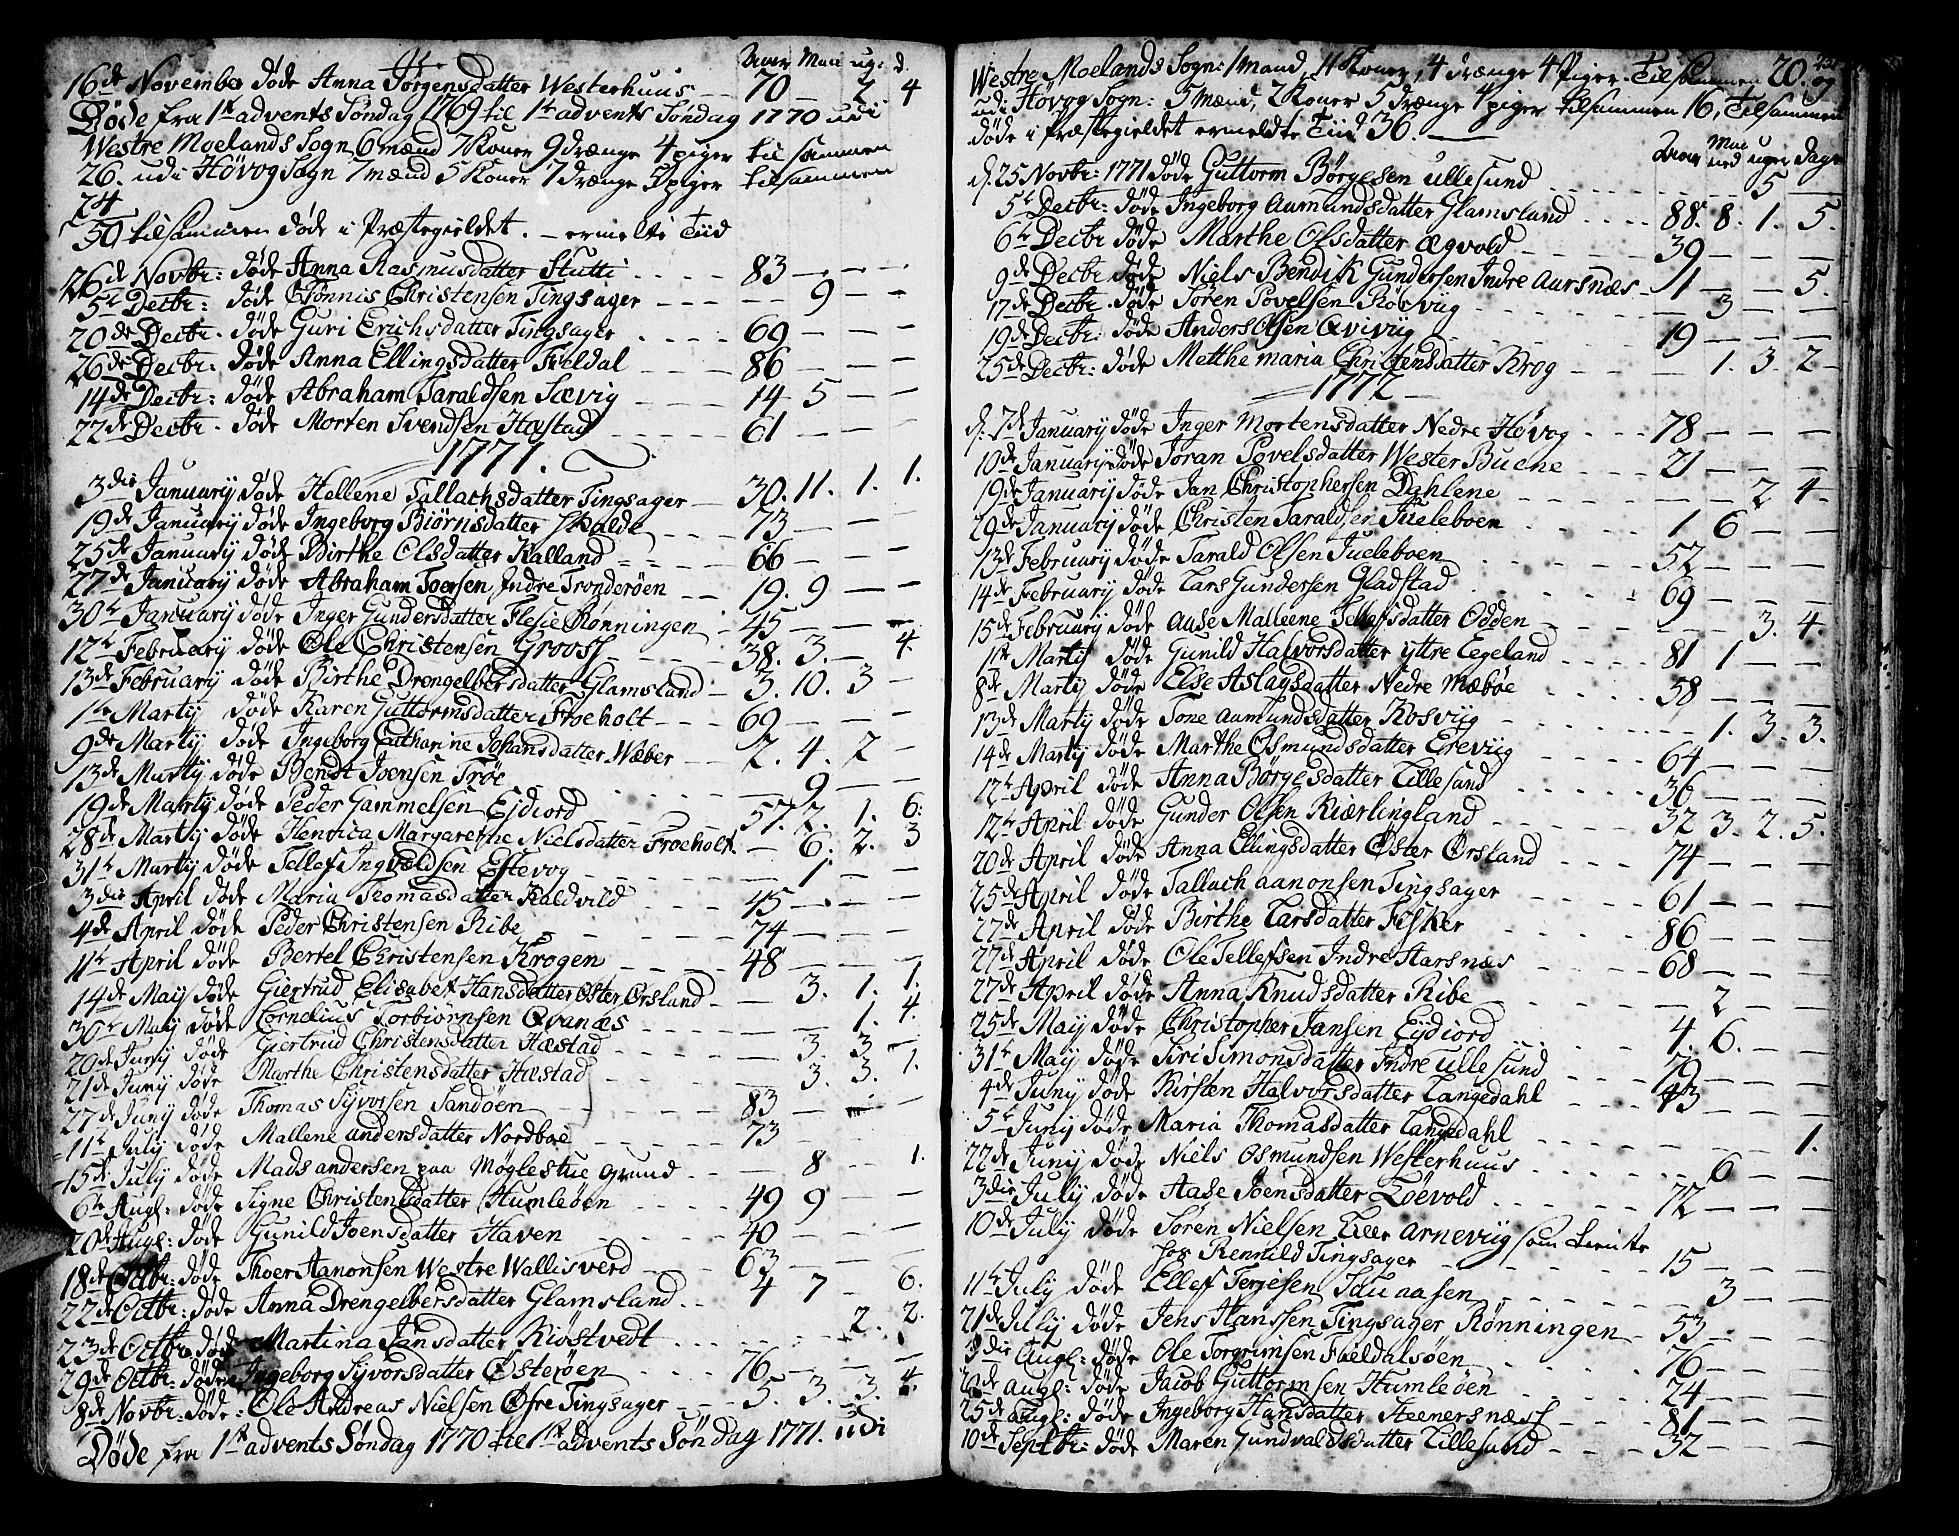 Aarer Mnn ug: d.
16de November døde Anna Jørgensdatter Westerhuus — 70 — 2 4
Døde fra 1te advents Søndag 1769 til 1te advents Søndag 1770 udi
Westre Moelands Sogn 6 mænd 7 Koner 9 drænge 4 piger til sammen
26. udi Høvog Sogn 7 mænd 5 Koner 7 drænge 5 piger tilsammen
24
50 tilsammen døde i Præstegieldet. — ermelte Tiid
26de Novbr: døde Anna Rasmusdatter Stutti . . . . 83 — — —
5te Decbr: døde Tønnis Christensen Tingsager — — — 9 — —
20de Decbr. døde Guri Erichsdatter Tingsager . . . . 69 — — —
26de Decbr: døde Anna Ellingsdatter Fieldal — — 86 — —
14de Decbr: døde Abraham Taraldsen Sævig — — 14 5 — —
22de Decbr. døde Morten Svendsen Hæstad — — 61 — — —
1771.
3die January døde Hellene Tallachsdatter Tingsager — 30. 11. 1. 1.
19de January døde Ingeborg Biørnsdatter Skalde — 73 — — —
25de January døde Birthe Olsdatter Kalland — — 66 — — —
27de January døde Abraham Toersen Indre Tronderøen — 19. 9 — —
30te January døde Inger Gundersdatter Flesie Rønningen — 45 — — —
12te February døde Ole Christensen Grooss — — 38. 3. — 4.
13de February døde Birthe Drengelbersdatter Glamsland — 3. 10. 3 —
1te Martij døde Karen Guttormsdatter Froeholt — — 69 — — —
9de Martij døde Ingeborg Catharine Johansdatter Wæber — 2. 4. 2 —
13de Martij døde Bendt Joensen Trøe . . . . — 9 — —
19de Martij døde Peder Gammelsen Ejdiord — — 57. 2. 1. 6.
28de Martij døde Henrica Margarethe Nielsdatter Froeholt. — 6. 2. 3
31te Martij døde Tellef Ingvældsen Eftevog — — — 1 — —
3die April døde Maria Thomasdatter Kaldvild . . . . 45 — — —
4de April døde Peder Christensen Ribe — — 74 — — —
11te April døde Bertel Christensen Krogen — — 48 — — —
14de Maij døde Giertrud Elisabet Hansdatter Øster Ørsland — — 3. 1. 1.
30te Maij døde Cornelius Torbiørnsen Qvanæs — — — — 1. 4.
20de Junij døde Giertrud Christensdatter Hæstad — — 3. 3 —
21de Junij døde Marthe Christensdatter Hæstad — — 3. 3. 1.
27de Junij døde Thomas Syvorsen Sandøen — — 83 — — —
11te July døde Mallene andersdatter Nordboe — — 73 — — —
15de July døde Mads andersen paa Møglestue grund — — 8 — 1.
6te Augl: døde Signe Christensdatter Humleøen . . . . 49 9 — —
20de Augl: døde Gunild Joensdatter Haven — — 40 — — —
18de Octbr: døde Thoer Aanonsen Westre Wallisverd — — 63 — — —
22de Octbr: døde Anna Drengelbersdatter Glamsland — 4 7 — 6.
23de Octbr døde Martina Jansdatter Kiøstvedt . . . . 2. 2.
29de Octbr: døde Ingeborg Syvorsdatter Østerøen . . . . 76 — — —
8de Novbr: døde: Ole Andreas Nielsen Øfre Tingsager — 5. 3. 3. 4.
Døde fra 1te advents Søndag 1770 til 1te advents Søndag 1771. udi
Westre Moelands Sogn: 1 mand, 11 Koner, 4 drænge 4 Piger. Til sammen 20.
udi Høvog Sogn: 5 Mænd, 2 Koner 5 drænge 4 piger tilsammen 16, Tilsammen
døde i Præstegieldet ermeldte Tiid 36. —
Aarer Mnn ned uger dage
d. 25 Novbr: 1771 døde Guttorm Børgesen Ullesund . . . . 5 —
5te Decbr: døde Ingeborg Aamundsdatter Glamsland . . . . 88. 8. 1. 5.
6te Decbr døde Marthe Olsdatter Ægvold — — 39 — — —
9de Decbr døde Niels Bendik Gundersen Indre Aarsnæs — 1 — — 5.
17de Decbr. døde Søren Povelsen Rosviig . . . . — 3 — —
19de Decbr: døde Anders Olsen Qviviig — — 19 — — —
25de Decbr: døde Metthe maria Christensdatter Krog — — 1. 3. 2 —
1772
d. 7de January døde Inger Mortensdatter Nedre Høvog . . . . 78 — — —
10de January døde Joran Povelsdatter Wester Buene — — 21 — — —
19de January døde Jan Christophersen Dahlene — — — — 2 4.
29de January døde Christen Taraldsen Jueleboen . . . . 1. 6 — —
13de February døde Tarald Olsen Jueleboen — — 52 — — —
14de February døde Lars Gundersen Gladstad . . . . 69 — — —
15de February døde Aase Malleene Tellefsdatter Odden — — — 3. 4.
1te Martij døde Gunild Halvorsdatter yttre Egeland . . . . 81 1 — —
8de Martij døde Else Aslagsdatter Nedre Mæbøe . . . . 58 — — —
13de Martij døde Tone Aamundsdatter Rosviig . . . . 1. 3. 3.
14de Martij døde Marthe Osmundsdatter Ereviig — — 64 — — —
12te April døde Anna Børgesdatter Lillesund . . . . 36 — — —
12te April døde Gunder Olsen Kiærlingland . . . . 32 3. 2. 5.
20de April døde Anna Ellingsdatter Øster Ørsland — — 74 — — —
25de April døde Tallach aanonsen Tingsager — — 61 — — —
27de April døde Birthe Larsdatter Fisker — — 86 — — —
27de April døde Ole Tellefsen Indre Aarsnæs . . . . 68 — — —
27de April døde Anna Knudsdatter Ribe — — — 2 — —
25de Maij døde Christopher Jansen Eydiord . . . . 4. 6. — —
31te Maij døde Siri Simonsdatter Indre Ullesund — — 79 — — —
4de Junij døde Kirsten Halvorsdatter Langedahl — — 43 — — —
5te Junij døde Maria Thomasdatter Langedahl — — — — 1.
22de Junij døde Niels Osmundsen Westerhuus . . . . — 6 — —
3die July døde Aase Joensdatter Løevold . . . . 72 — — —
10de July døde Søren Nielsen Lille Arneviig som tiente
hos Rennild Tingsager — — 15 — — —
11te July døde Ellef Terjesen Iduaasen — — — 3 — —
21de July døde Jens Hanssen Tingsager Rønningen — 53 — — —
3die Augl: døde Ole Torgrimsen Fieldalsøen — — 76 — — —
20de augl: døde Jacob Guttormsen Humleøen . . . . 24 — — —
25de Augl: døde Ingeborg Hansdatter Steenersnæss . . . . 81 — — —
10de Septbr: døde Maren Gundvaldsdatter Lillesund — — 32 — — —